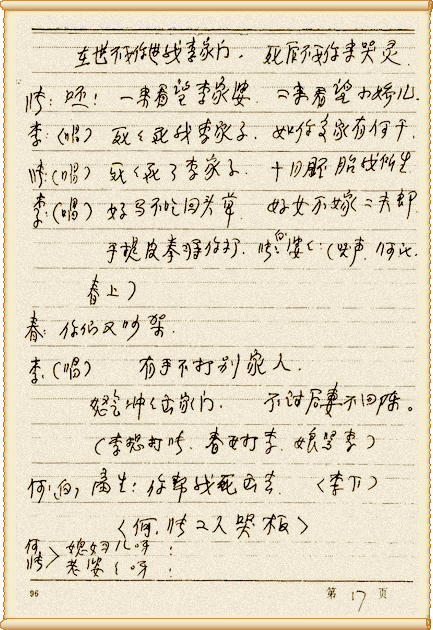 在世不要你进我李家门, 死后不要你来哭灵.
陈: 呸! 一来看望李家婆. 二来看望小娇儿.
李:(唱) 死く死我李家子. 如你多家有何干.
陈:(唱) 死く死了李家子. 十月胚胎我所生.
李:(唱) 好马不吃回头草. 好女不嫁二夫郎
手提皮拳将你打. 陈: 婆く:(哭声. 何氏.
春上)
春: 你们又吵架.
李:(唱) 有手不打别家人.
怒气冲く出家门. 不讨后妻不回阵。
(李怒打陈. 春也打李. 娘骂李)
何:(白) 生: 你帮我死出去. (李下)
(何, 陈二人哭板)
何 媳妇儿呀!
陈 > 老婆く呀!
96 第 17 页